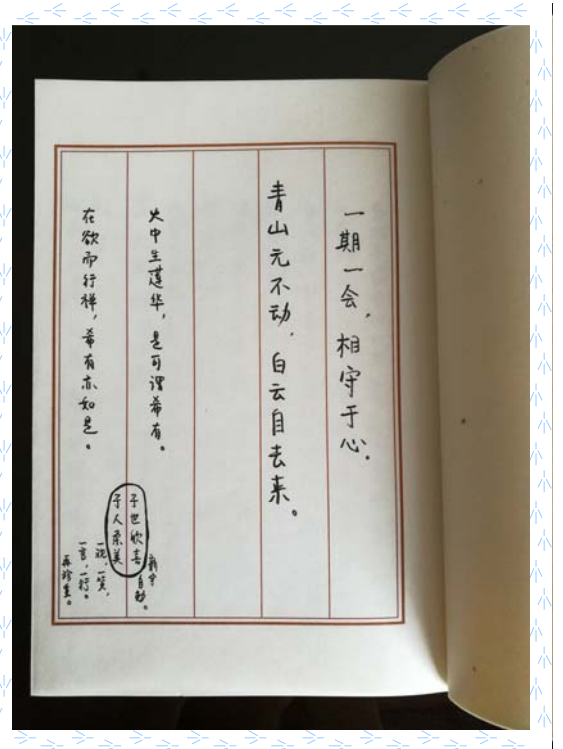 一期一会，相守于心。
青山元不动，白云自去来。
火中生莲华，是可谓希有。
在欲而行禅，希有亦如是。
于世欣喜
于人柔美
自勉。
一祝，一笑，
一言，一行。
再珍重。